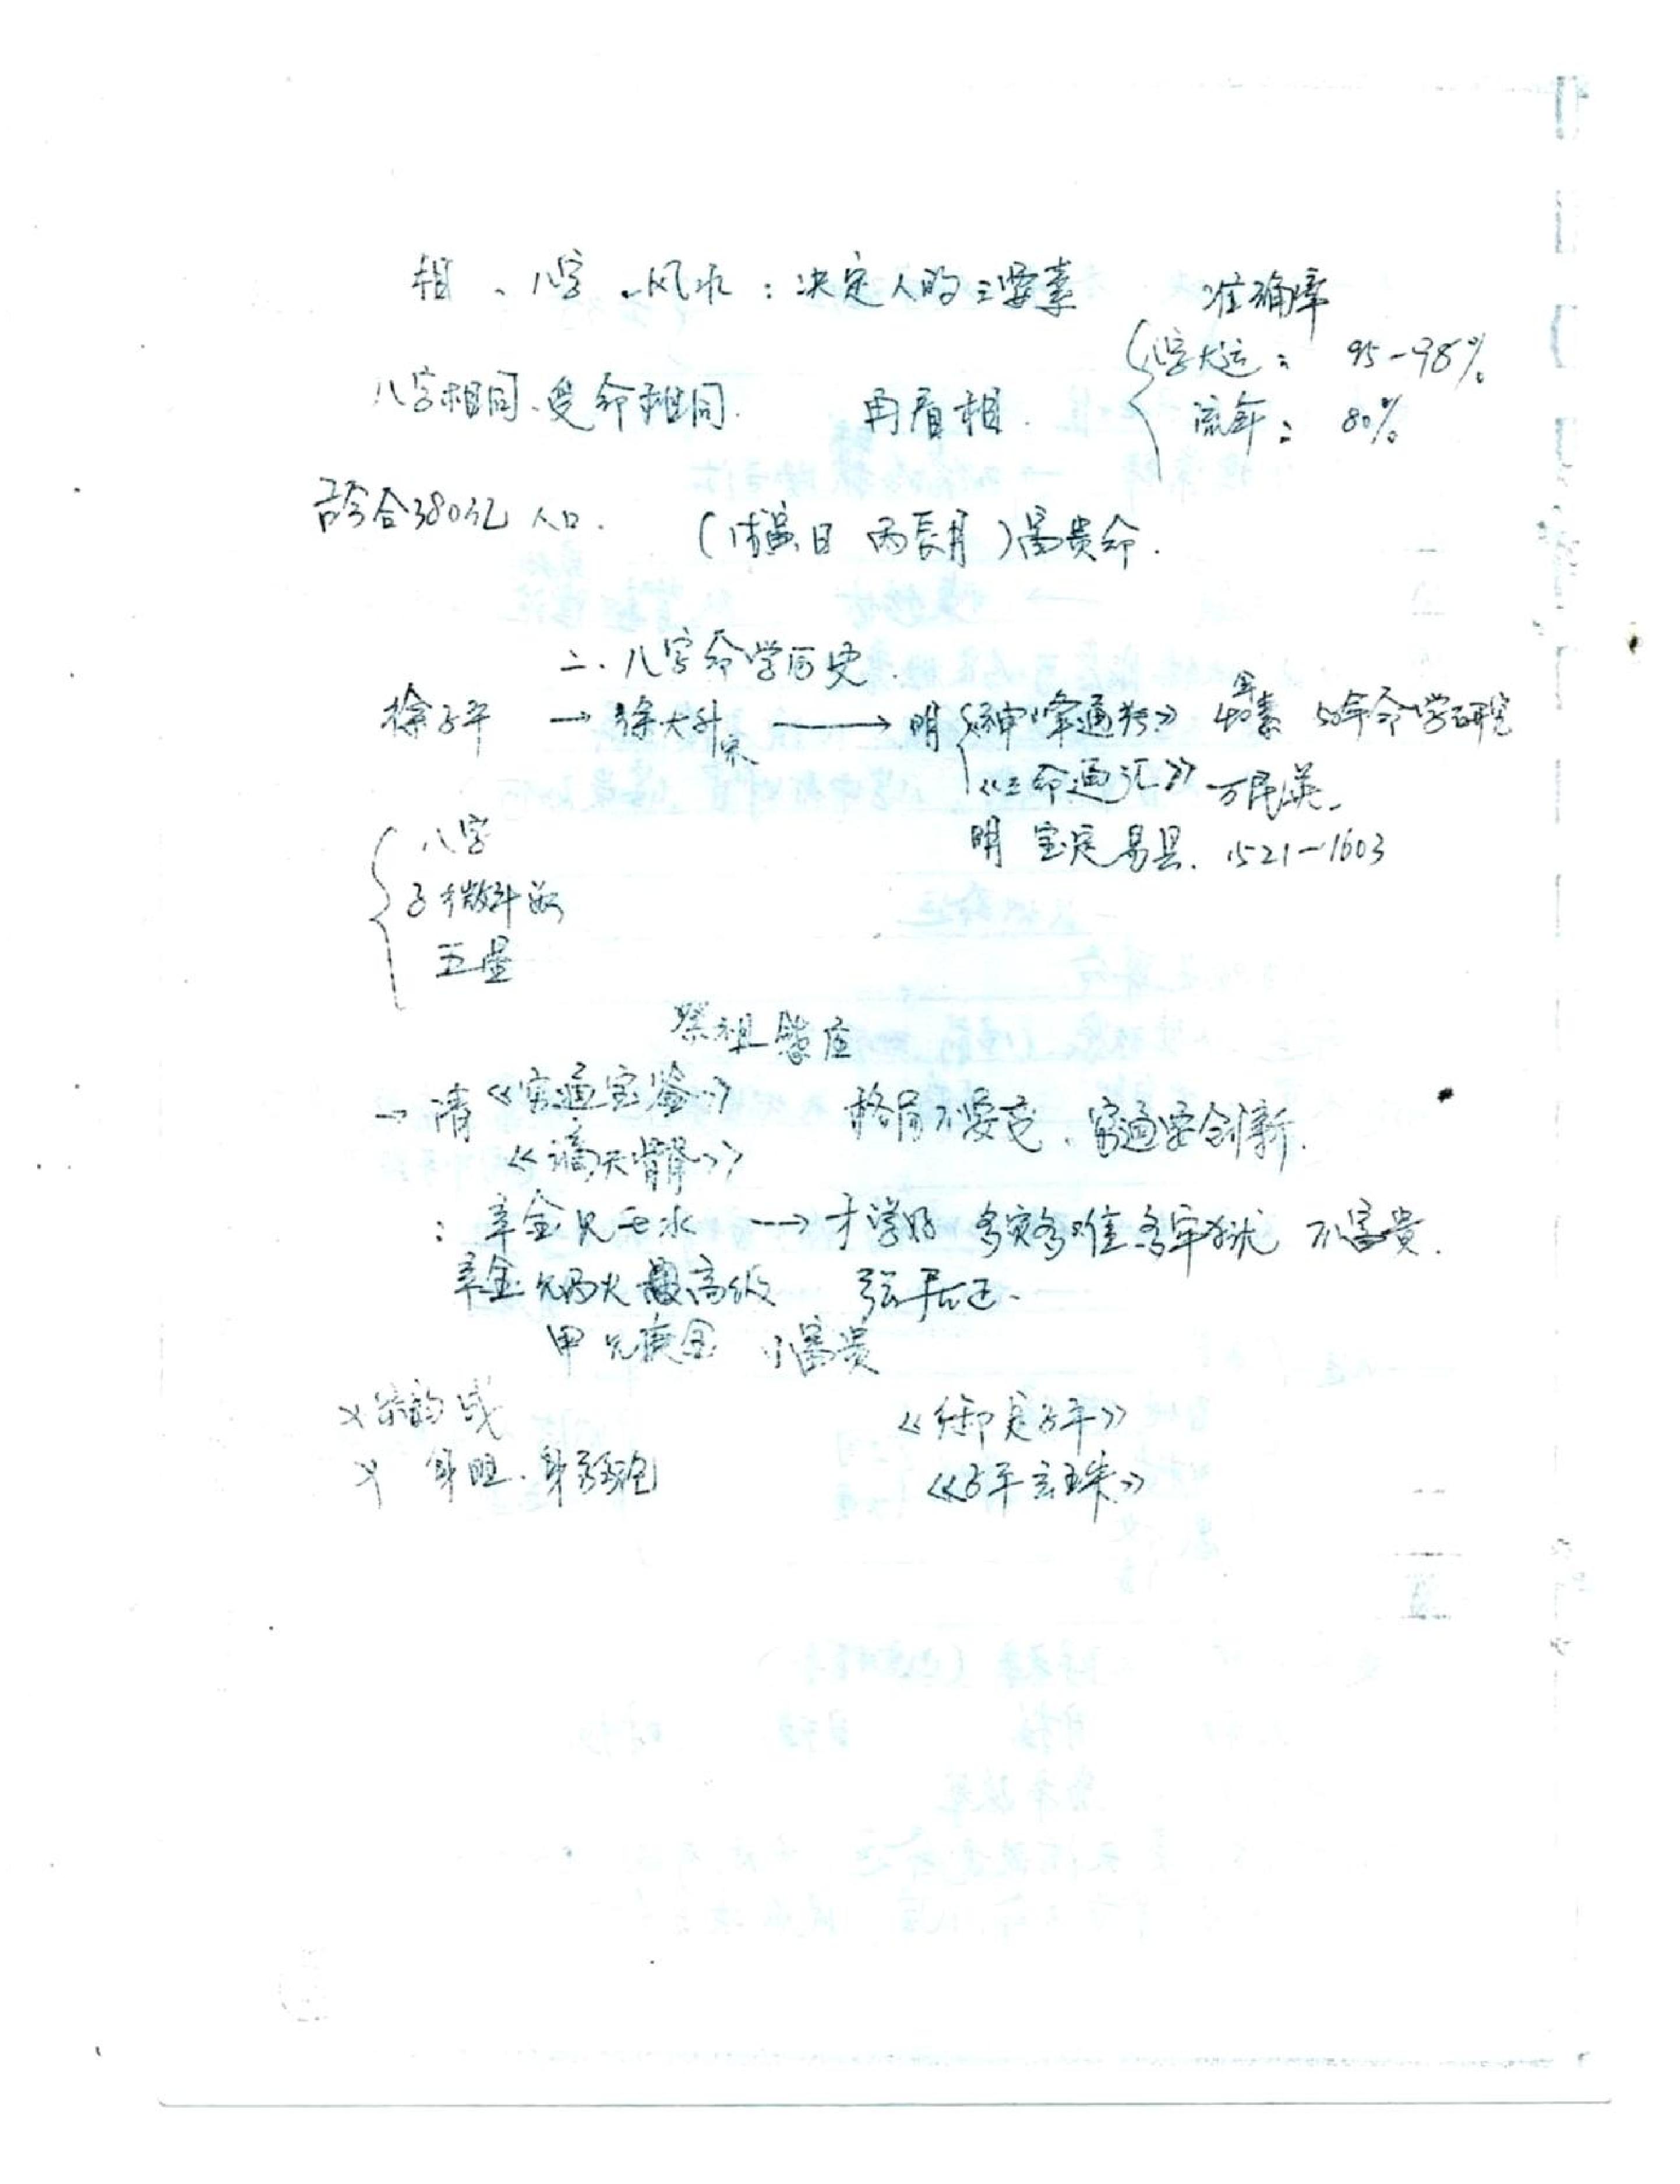 相、八字、风水：决定人的三要素 准确率
八字大运： 95-98%
八字相同、受命相同. 再看相. 流年： 80%
符合380亿人口. ( 日 丙辰月)富贵命.
二.八字命学历史.
徐子平 → 徐大升 宋 → 明《神峰通考》 50年命学研究
《三命通汇》万民英.
明 宝定易县. 1521-1603
八字
子微斗数
五星
→ 清《穷通宝鉴》 格局不要忘、穷通要创新.
《滴天髓》
：辛金见壬水 → 才学好 多灾多难多牢狱 不富贵.
辛金见丙火最高级 张居正.
甲见庚金 小富贵
× 《御定子平》
× 身旺.身弱论 《子平玄珠》